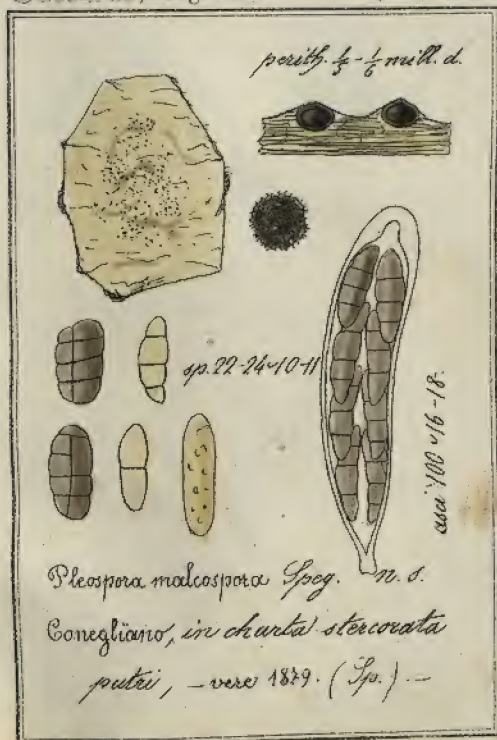 perith. 1/5 - 1/6 mill. d.
sp. 22-24 v 10-11
asci 100 v 16-18.
Pleospora malcospora Speg. n. s.
Conegliano, in charta stercorata
putri, – vere 1879. (Sp.) –